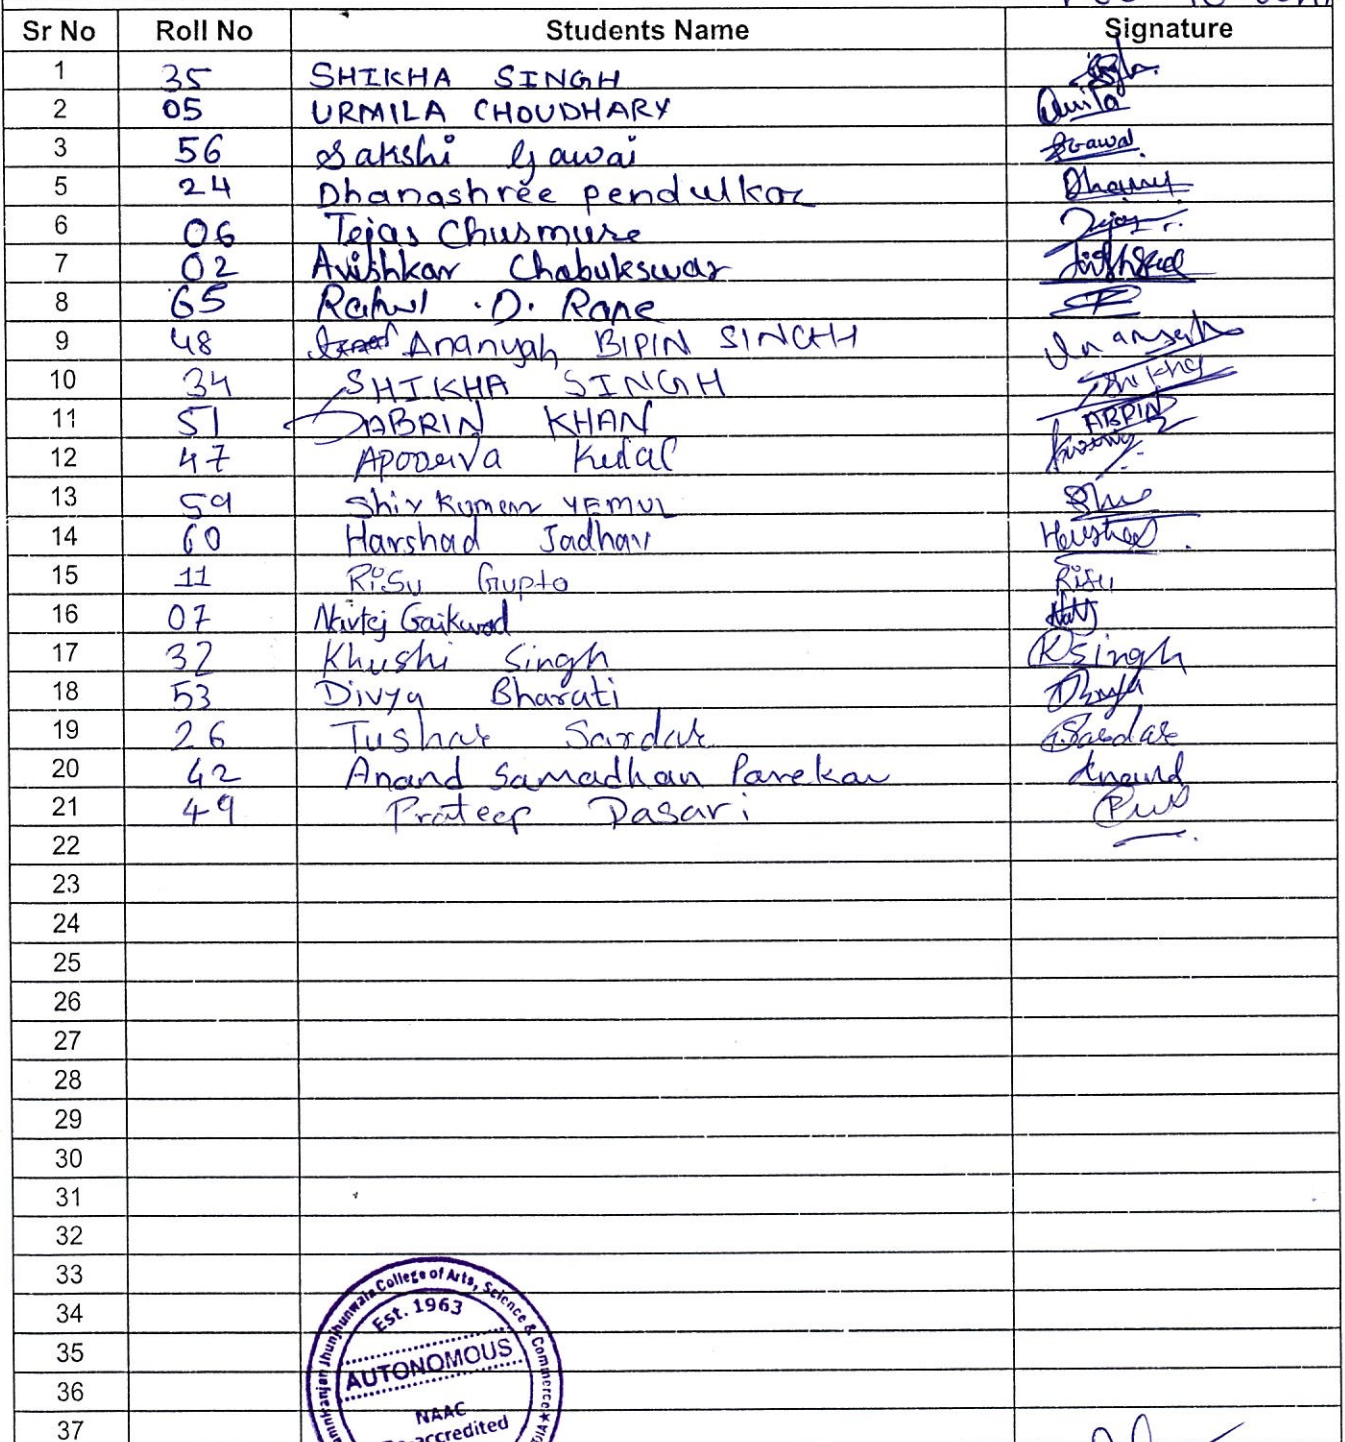 Sr No Roll No Students Name Signature
1 35 SHIKHA SINGH
2 05 URMILA CHOUDHARY
3 56 Sakshi Gawai
5 24 Dhanashree pendulkar
6 06 Tejas Chusmure
7 02 Avishkar Chabukswar
8 65 Rahul .D. Rane
9 48 Ananyah BIPIN SINGH
10 34 SHIKHA SINGH Shikha
11 51 SABRIN KHAN SABRIN
12 47 Apoorva
13 59 Shiv Kumar YEMUL
14 60 Harshad Jadhav Harshad
15 11 RiSu Gupta Risu
16 07 Navtej Gaikwad
17 32 Khushi Singh Ksingh
18 53 Divya Bharati Divya
19 26 Tushar Sardar Sardar
20 42 Anand Samadhan Parekar Anand
21 49 Prateep Dasari
22
23
24
25
26
27
28
29
30
31
32
33
34
35
36
37
Jhunjhunwala College of Arts, Science & Commerce★
Est. 1963
AUTONOMOUS
NAAC